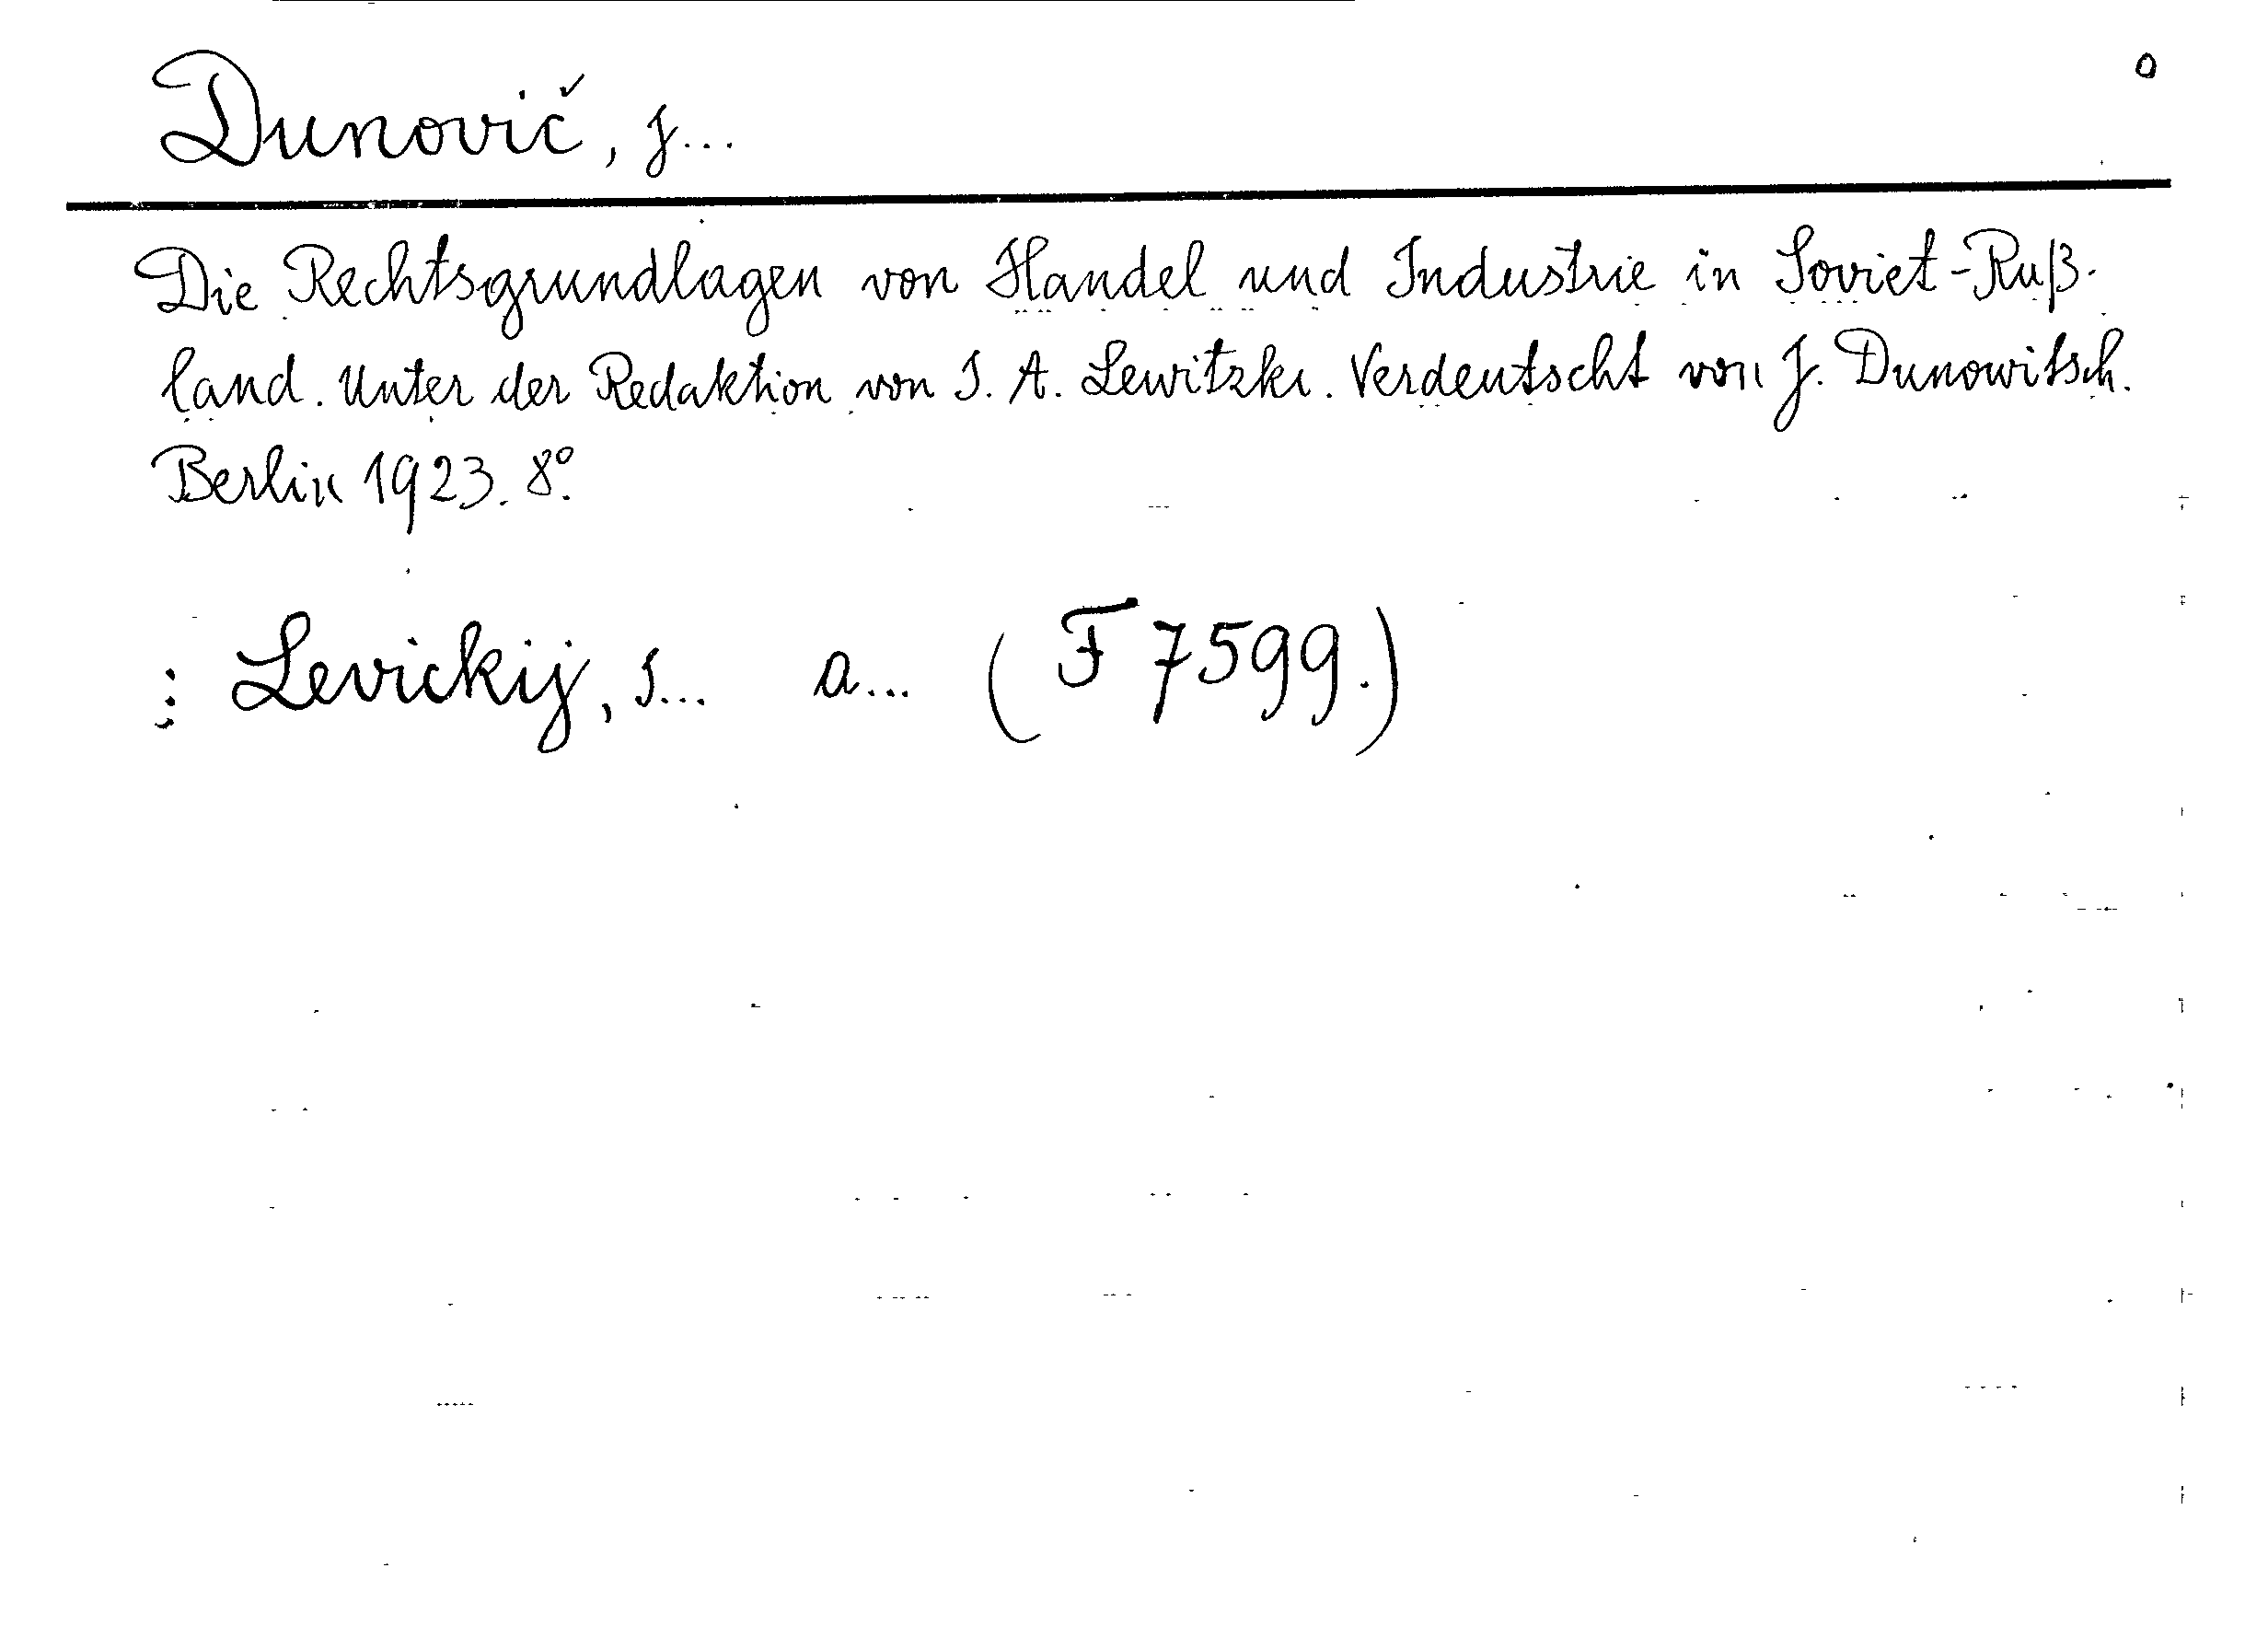 Dunovič, J...
Die Rechtsgrundlagen von Handel und Industrie in Soviet-Ruß-
land. Unter der Redaktion von S. A. Lewitzki. Verdeutscht von J. Dunowitsch.
Berlin 1923. 8°.
: Levickij, S... A... (F 7599.)